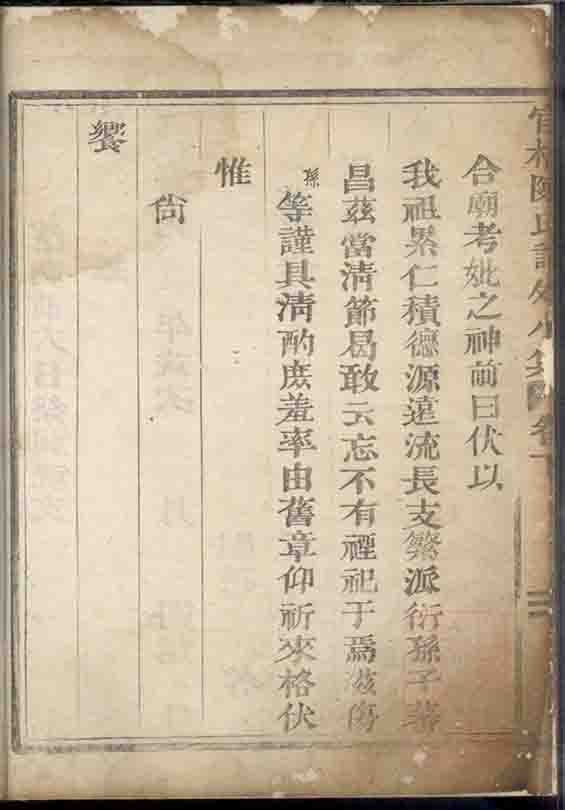 合廟考妣之神前曰伏以
我祖累仁積德源遠流長支繁派衍孫子蕃
昌茲當清節曷敢云忘不有禋祀于焉滋傷
孫等謹具清酌庶羞率由舊章仰祈來格伏
惟
尙
饗